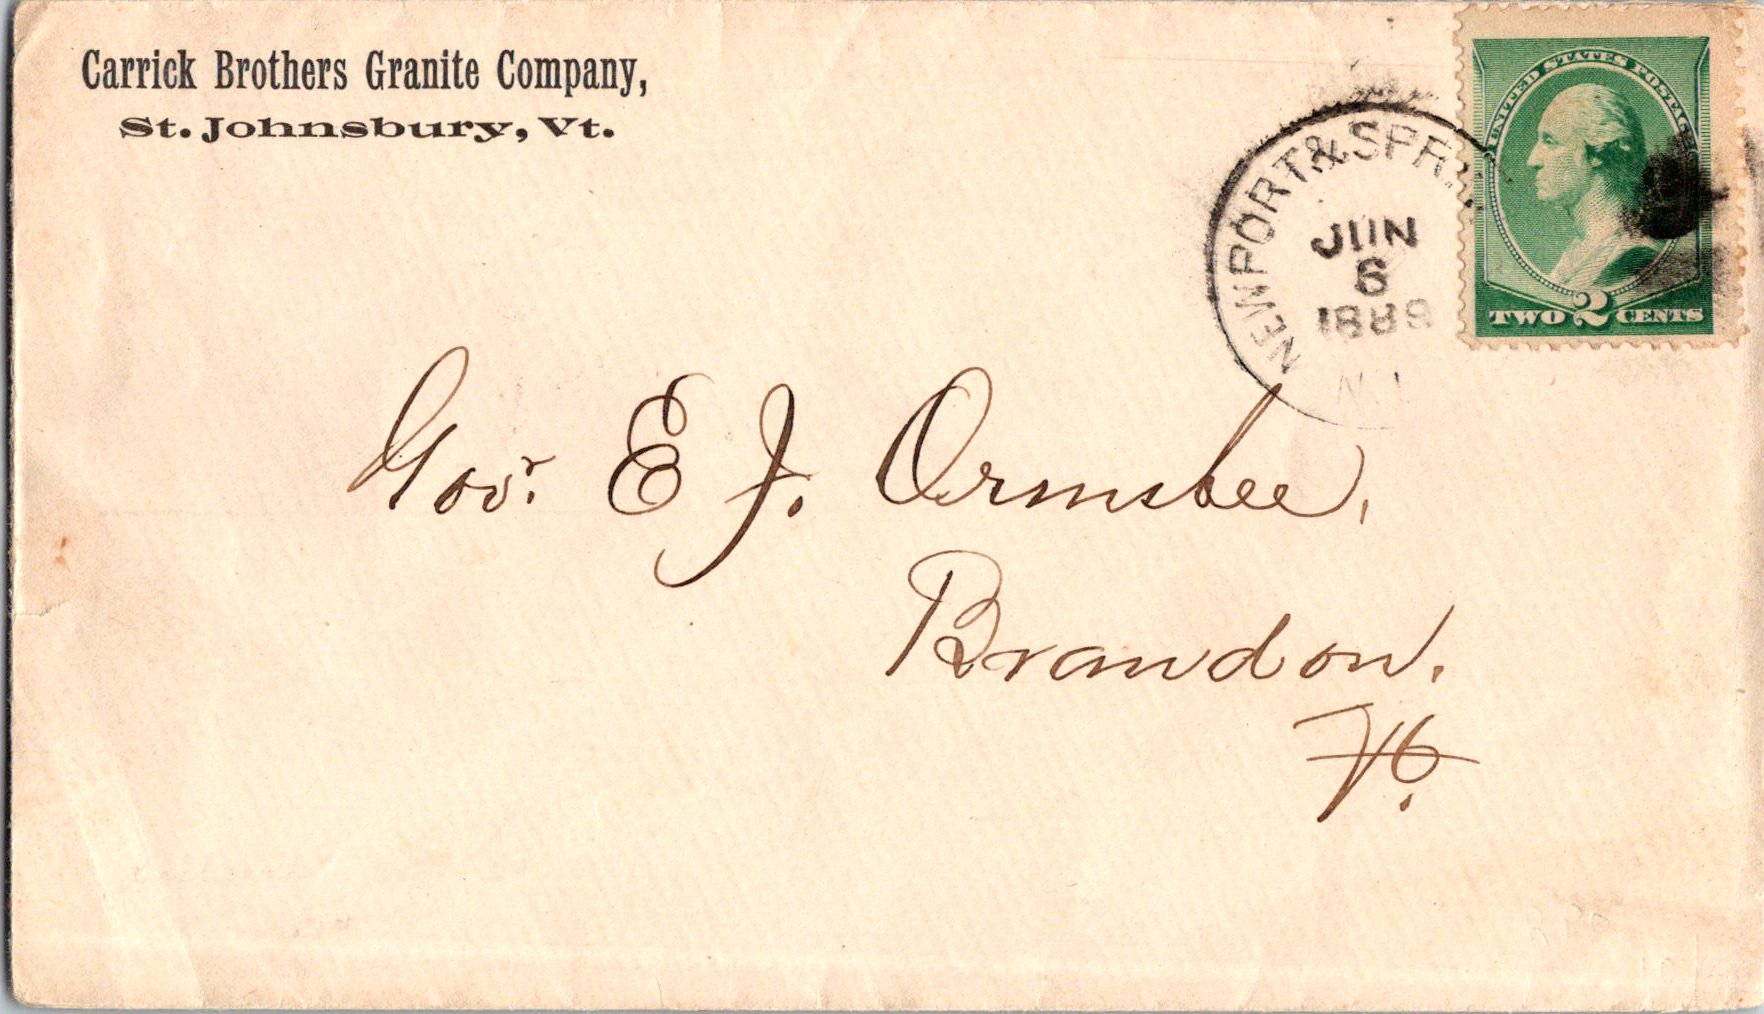 Carrick Brothers Granite Company,
St. Johnsbury, Vt.
UNITED STATES POSTAGE
TWO 2 CENTS
NEWPORT & SPR
JUN
6
1889
Gov.r E J. Ormsbee,
Brandon,
Vt.